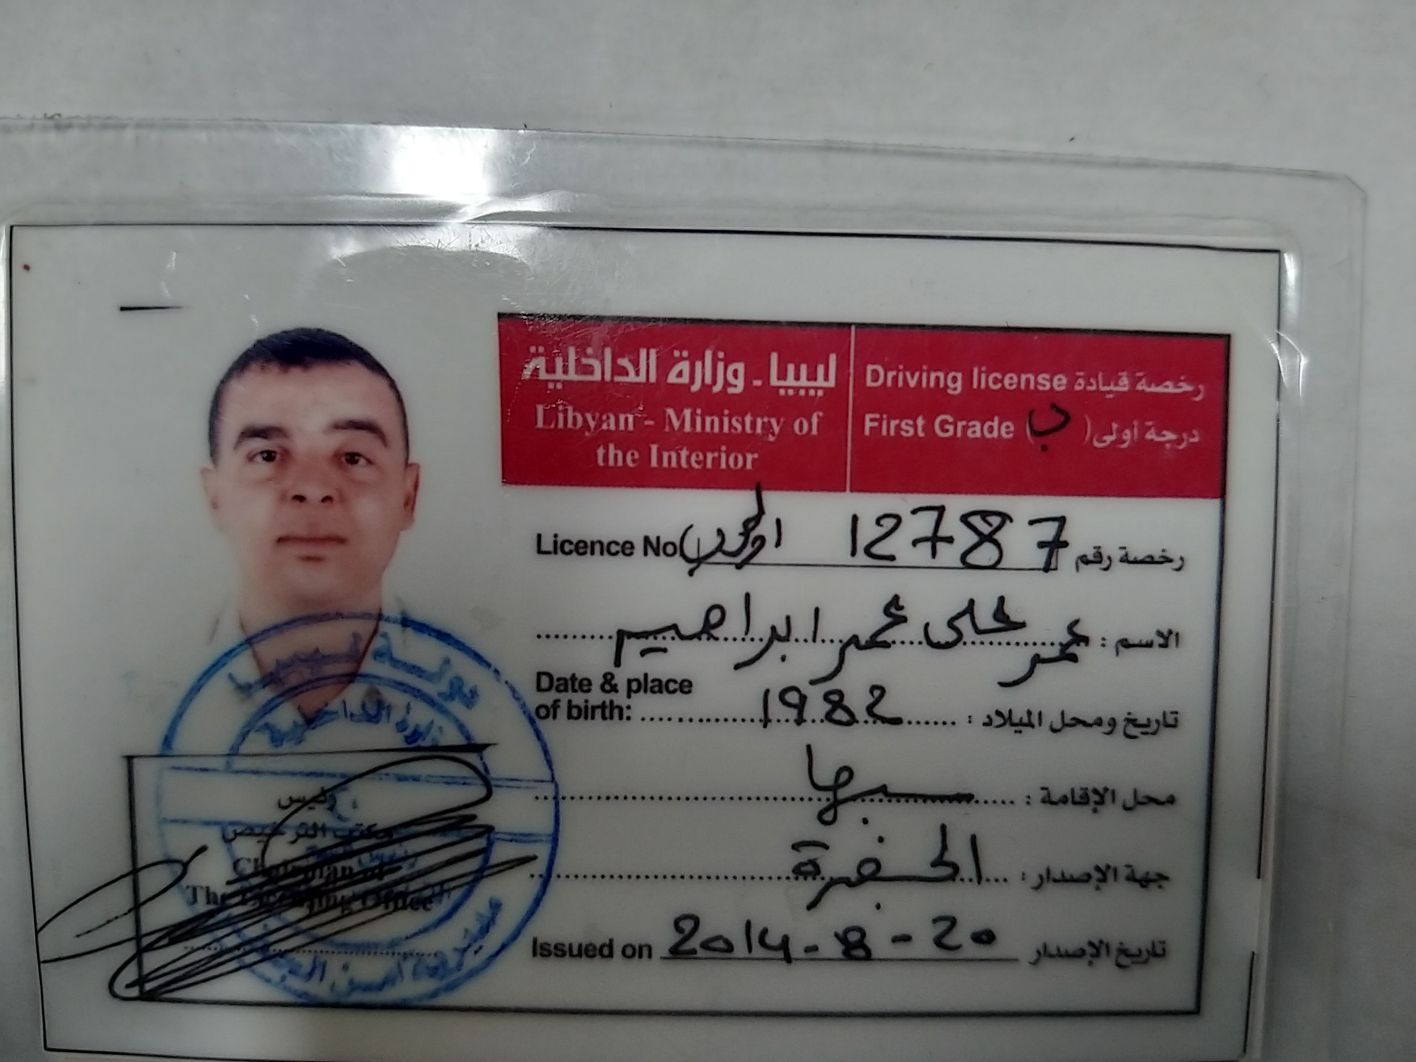 ليبيا - وزارة الداخلية
Libyan - Ministry of
the Interior
Driving license رخصة قيادة
First Grade (ب) درجة أولى
Licence No 12787 رخصة رقم
الاسم : عمر على عمر ابراهيم
Date & place
of birth: 1982 تاريخ ومحل الميلاد :
محل الإقامة : سبها
جهة الإصدار : الجفرة
Issued on 2014-8-20 تاريخ الإصدار
دولة ليبيا
وزارة الداخلية
رئيس
مكتب التراخيص
Chairman of
The Licensing Office